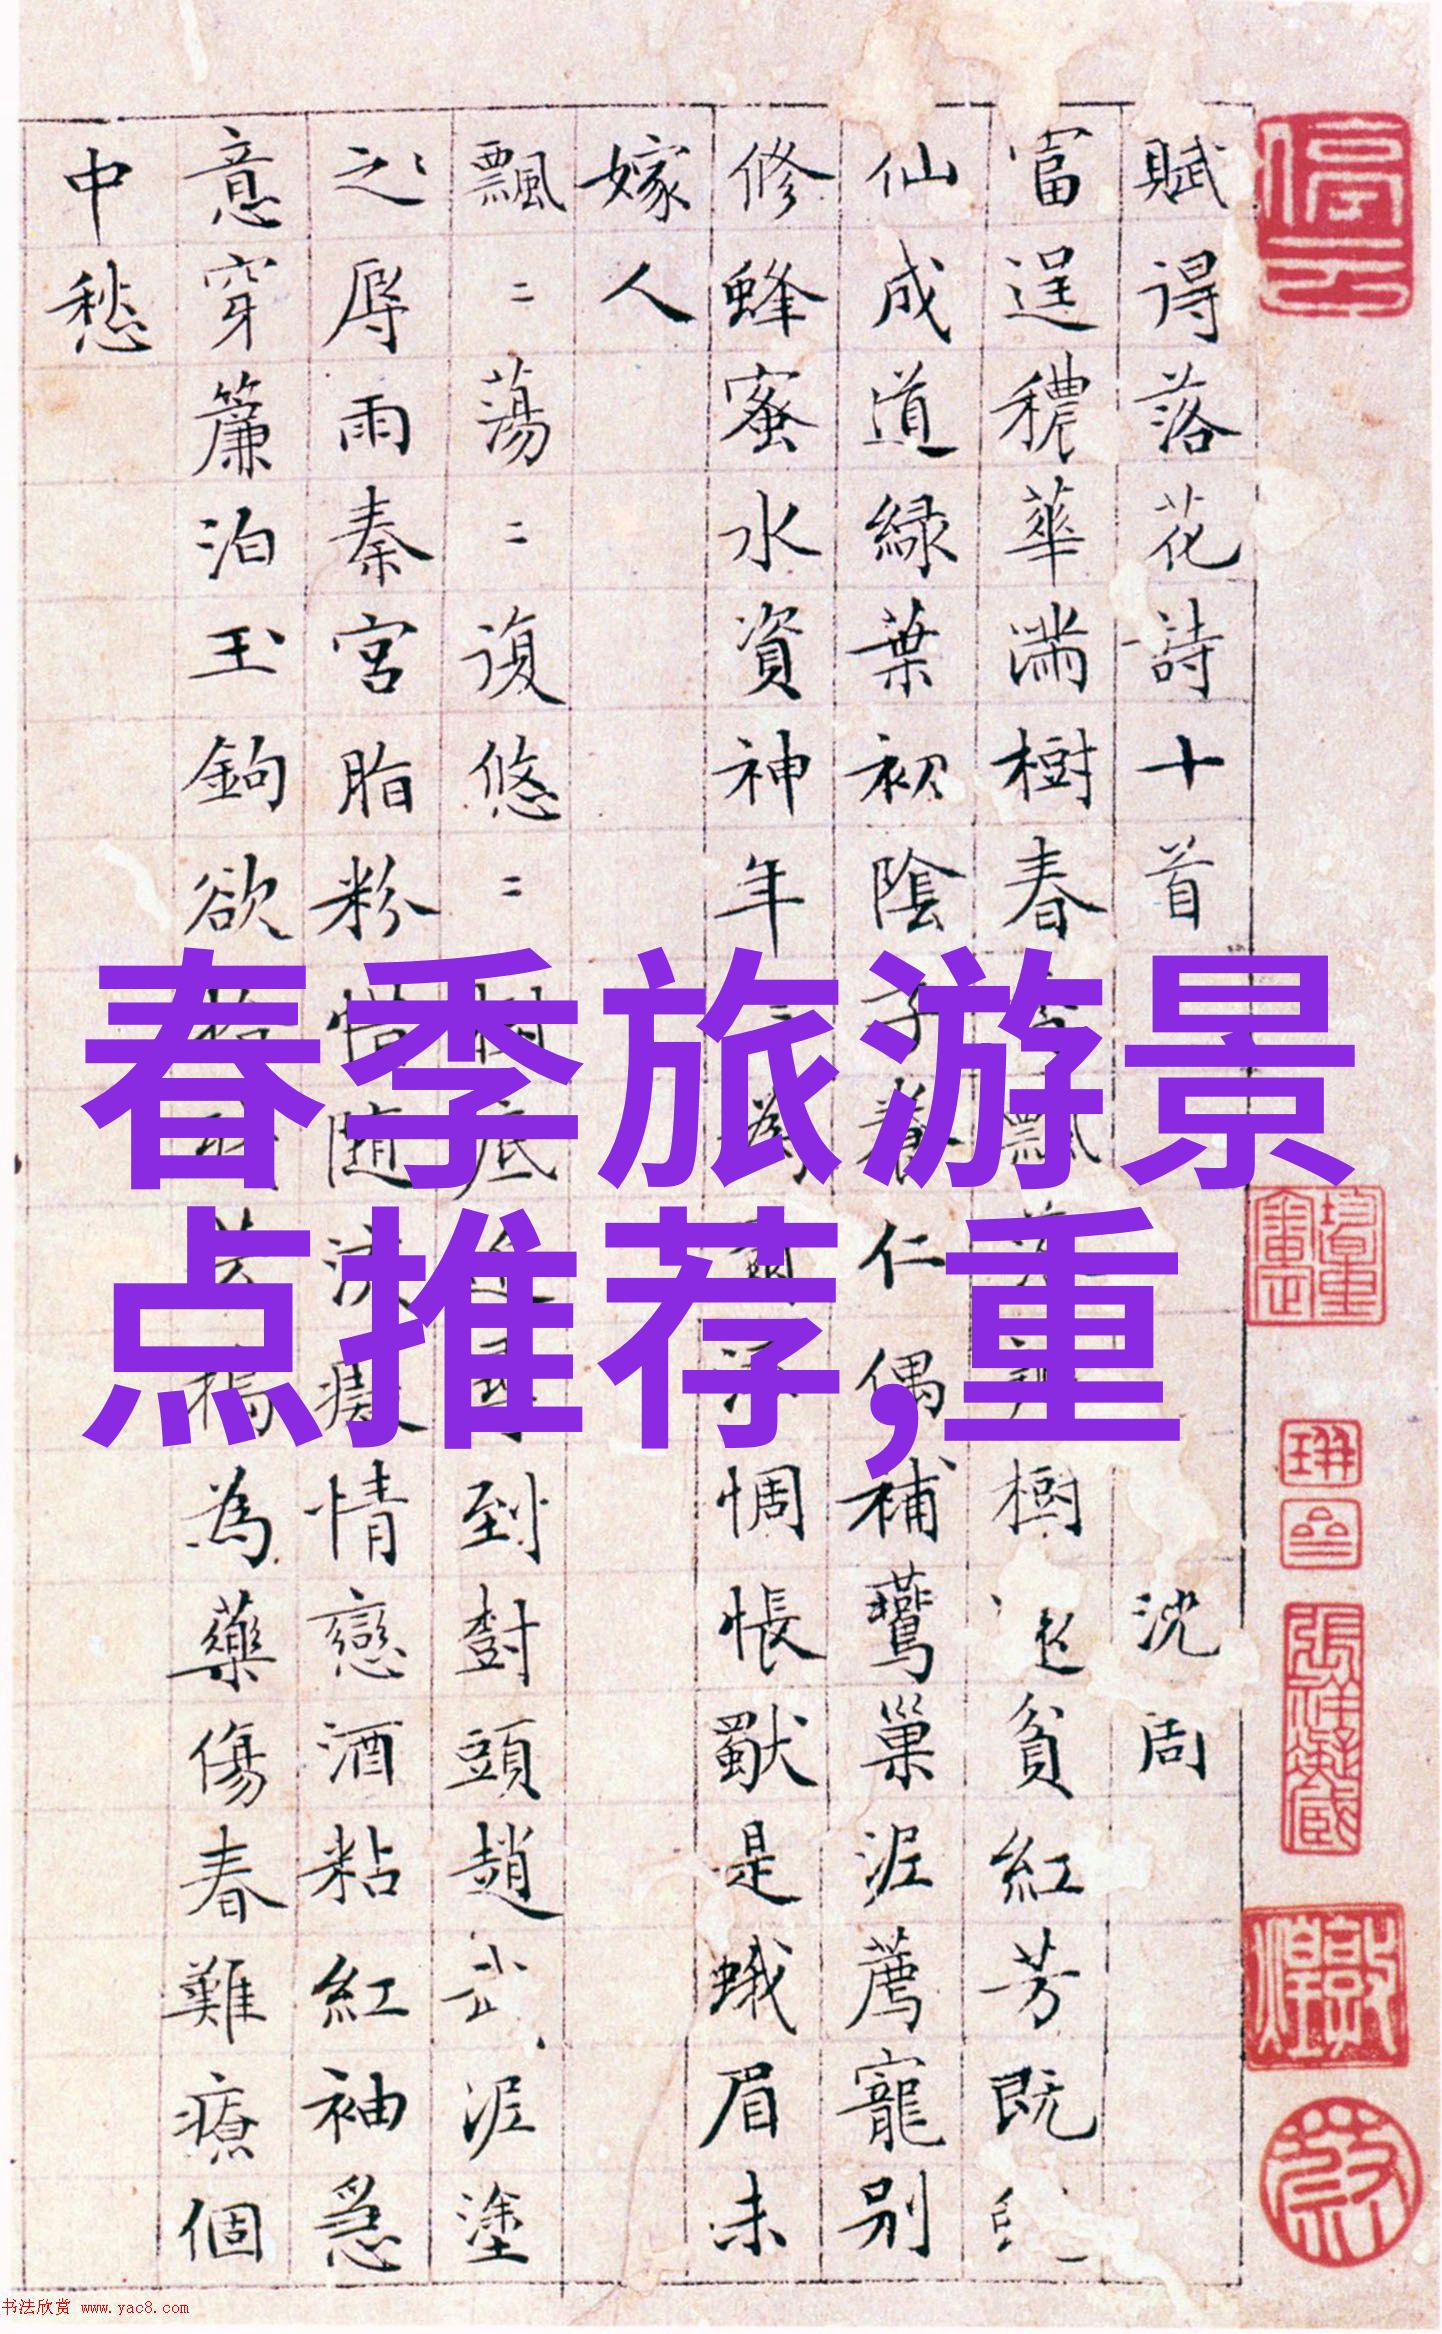 賦得落花詩十首 沈周
富逞穠華滿樹春 飄 樹 貧紅芳既
仙成道綠葉初陰子養仁偶補鶯巢泥薦寵別
修蜂蜜水資神年 為 惆悵獸是蛾眉未
嫁人
飄〻蕩〻復悠〻樹底 到樹頭趙 泥塗
之〻辱雨秦宮脂粉惜隨 情戀酒粘紅袖急
意穿簾泊玉鉤欲 為藥傷春難療個
中愁
春季旅游景
点推荐,重
停云
书法欣赏 www.yac8.com